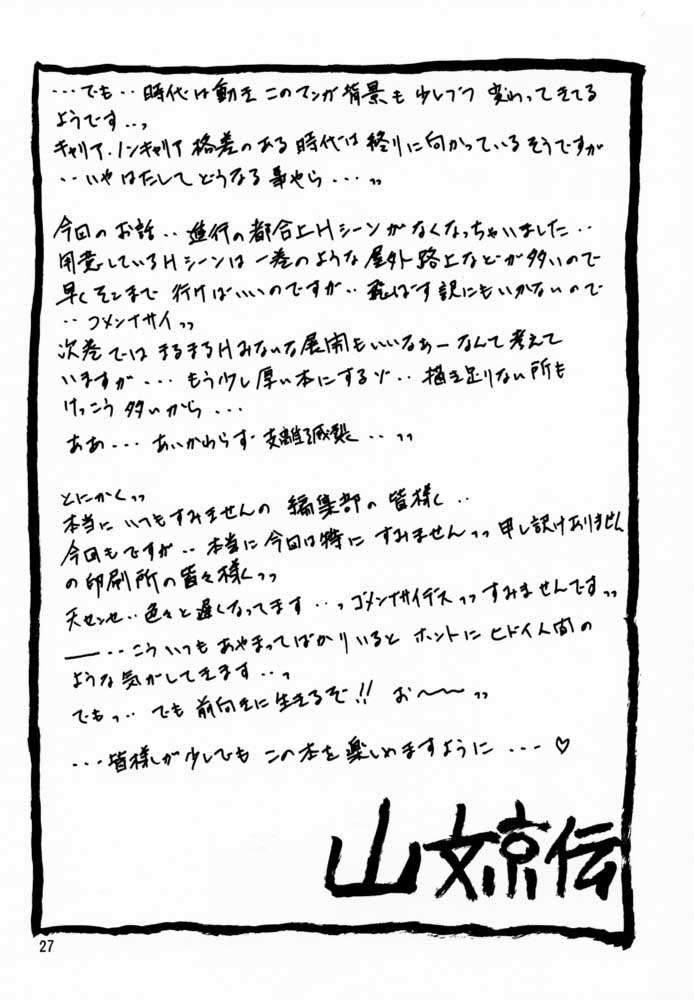 ・・・でも・・時代は動き このマンガ背景も少しづつ 変わってきてる
ようです・・っ
キャリア．ノンキャリア格差のある時代は終りに向かっているそうですが
・・いやはたしてどうなる事やら・・・〃
今回のお話・・進行の都合上Hシーンがなくなっちゃいました・・
用意しているHシーンは一巻のような屋外路上などが多いので
早くそこまで行けばいいのですが・・飛ばす訳にもいかないので
・・ゴメンナサイ〃
次巻ではまるまるHみたいな展開もいいなぁーなんて考えて
いますが・・・もう少し厚い本にするゾ・・描き足りない所も
けっこう多いから・・・
ああ・・・あいかわらず支離滅裂・・〃
とにかく〃
本当にいつもすみませんの編集部の皆様く・・
今回もですが・・本当に今回は特にすみません〃申し訳ありません
の印刷所の皆々様く〃
天センセ・・色々と遅くなってます・・っゴメンナサイデス〃すみませんです〃
――・・こういつもあやまってばかりいるとホントにヒドイ人間の
ような気がしてきます・・っ
でもっ・・でも前向きに生きるぞ!! お〜〜〃
・・・皆様が少しでもこの本を楽しめますように・・・♡
山文京伝
27